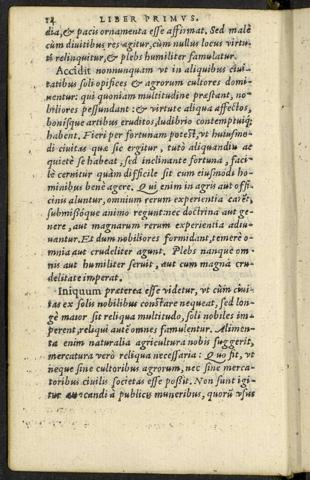 14 LIBER PRIMVS.
dia, & pacis ornamenta esse affirmat. Sed malè
cùm diuitibus res agitur, cùm nullus locus virtu-
ti relinquitur, & plebs humiliter famulatur.
Accidit nonnunquam vt in aliquibus ciui-
tatibus soli opifices & agrorum cultores domi-
nentur: qui quoniam multitudine præstant, no-
biliores pessundant: & virtute aliqua affectos,
bonisque artibus eruditos, ludibrio contemptuiq;
habent. Fieri per fortunam potest, vt huiusmo-
di ciuitas quæ sic ergitur, tutò aliquandiu ac
quietè se habeat, sed inclinante fortuna, faci-
lè cernitur quàm difficile sit cum eiusmodi ho-
minibus benè agere. Qui enim in agris aut offi-
cinis aluntur, omnium rerum experientia carēt,
submissóque animo regunt: nec doctrina aut ge-
nere, aut magnarum rerum experientia adiu-
uantur. Et dum nobiliores formidant, temerè o-
mnia aut crudeliter agunt. Plebs nanque om-
nis aut humiliter seruit, aut cum magna cru-
delitate imperat.
Iniquum præterea esse videtur, vt cùm ciui-
tas ex solis nobilibus constare nequeat, sed lon-
gè maior sit reliqua multitudo, soli nobiles im-
perent, reliqui autē omnes famulentur. Alimen-
ta enim naturalia agricultura nobis suggerit,
mercatura verò reliqua necessaria: Quo fit, vt
neque sine cultoribus agrorum, nec sine merca-
toribus ciuilis societas esse possit. Non sunt igi-
tur arcandi à publicis muneribus, quorū vsus